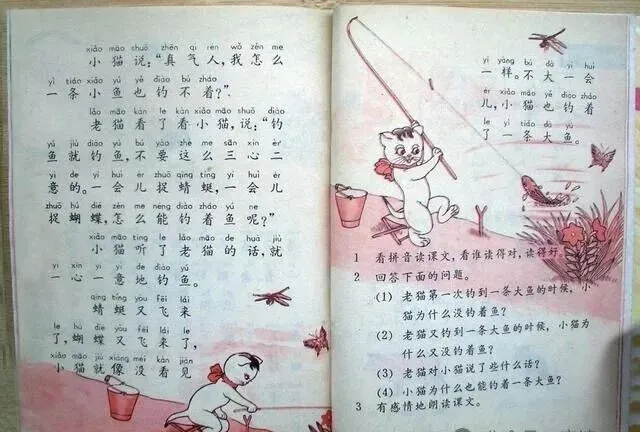 xiǎo māo shuō zhēn qì rén wǒ zěn me
小猫说:“真气人,我怎么
yì tiáo xiǎo yú yě diào bù zháo
一条小鱼也钓不着?”
lǎo māo kàn le kàn xiǎo māo shuō diào
老猫看了看小猫,说:“钓
yú jiù diào yú bú yào zhè me sān xīn èr
鱼就钓鱼,不要这么三心二
yì de yí huì er zhuō qīng tíng yí huì er
意的。一会儿捉蜻蜓,一会儿
zhuō hú dié zěn me néng diào zháo yú ne
捉蝴蝶,怎么能钓着鱼呢?”
xiǎo māo tīng le lǎo māo de huà jiù
小猫听了老猫的话,就
yì xīn yí yì de diào yú
一心一意地钓鱼。
qīng tíng yòu fēi lái
蜻蜓又飞来
le hú dié yòu fēi lái le
了,蝴蝶又飞来了,
xiǎo māo jiù xiàng méi kàn jiàn
小猫就像没看见
yí yàng bú dà yì huì
一样。不大一会
er xiǎo māo yě diào zháo
儿,小猫也钓着
le yì tiáo dà yú
了一条大鱼。
1 看拼音读课文,看谁读得对,读得好。
2 回答下面的问题。
(1) 老猫第一次钓到一条大鱼的时候,小
猫为什么没钓着鱼?
(2) 老猫又钓到一条大鱼的时候,小猫为
什么又没钓着鱼?
(3) 老猫对小猫说了些什么话?
(4) 小猫为什么也能钓着一条大鱼?
3 有感情地朗读课文。